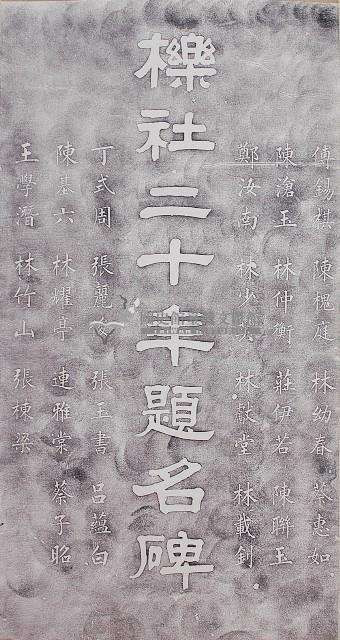 傅錫祺 陳槐庭 林幼春 蔡惠如
陳滄玉 林仲衡 莊伊若 陳聯玉
鄭汝南 林少英 林獻堂 林載釗
櫟社二十年題名碑
丁式周 張麗俊 張玉書 呂蘊白
陳基六 林耀亭 連雅棠 蔡子昭
王學潛 林竹山 張棟梁